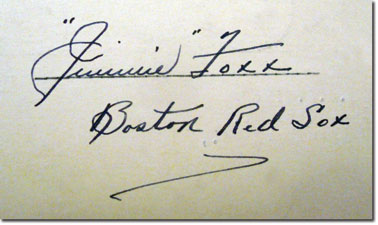 "Jimmie" Foxx
Boston Red Sox